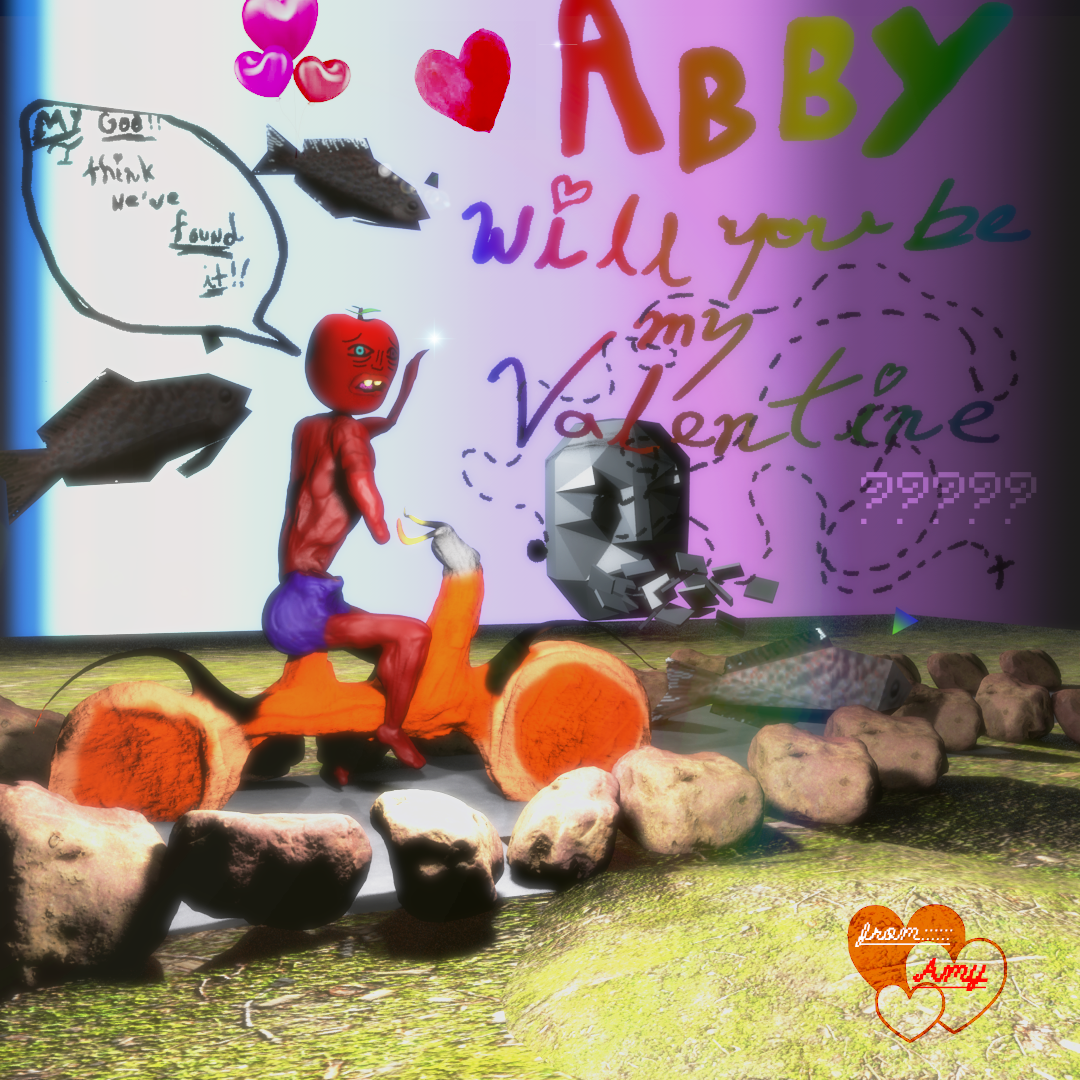 ABBY
Will you be
my
Valentine
?????
MY GOD!!
I
think
we've
found
it!!
from......
Amy